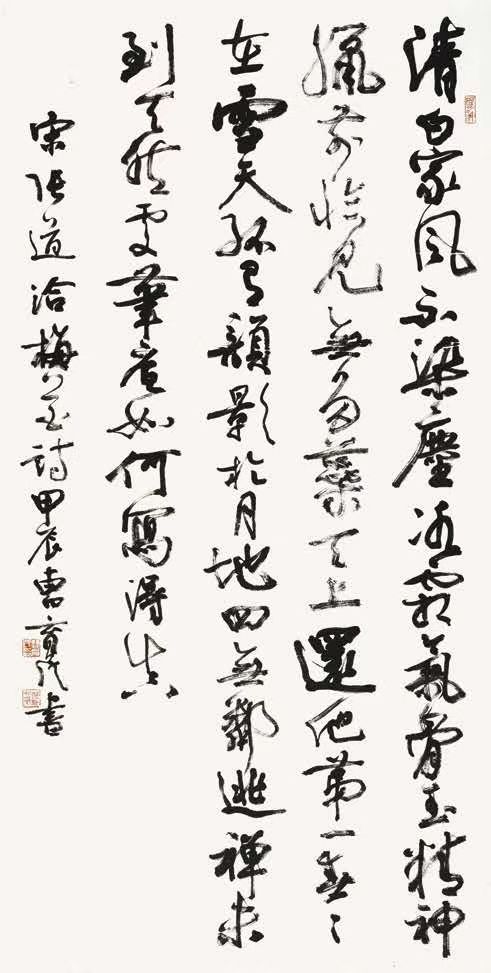 清白家風不染塵冰霜氣骨玉精神
臘前怪見無多蘂天上還他第一春〻
在雪天孤有韻影於月地四無鄰逃禪未
到天然處筆意如何寫得真
宋張道洽梅花詩甲辰曹書